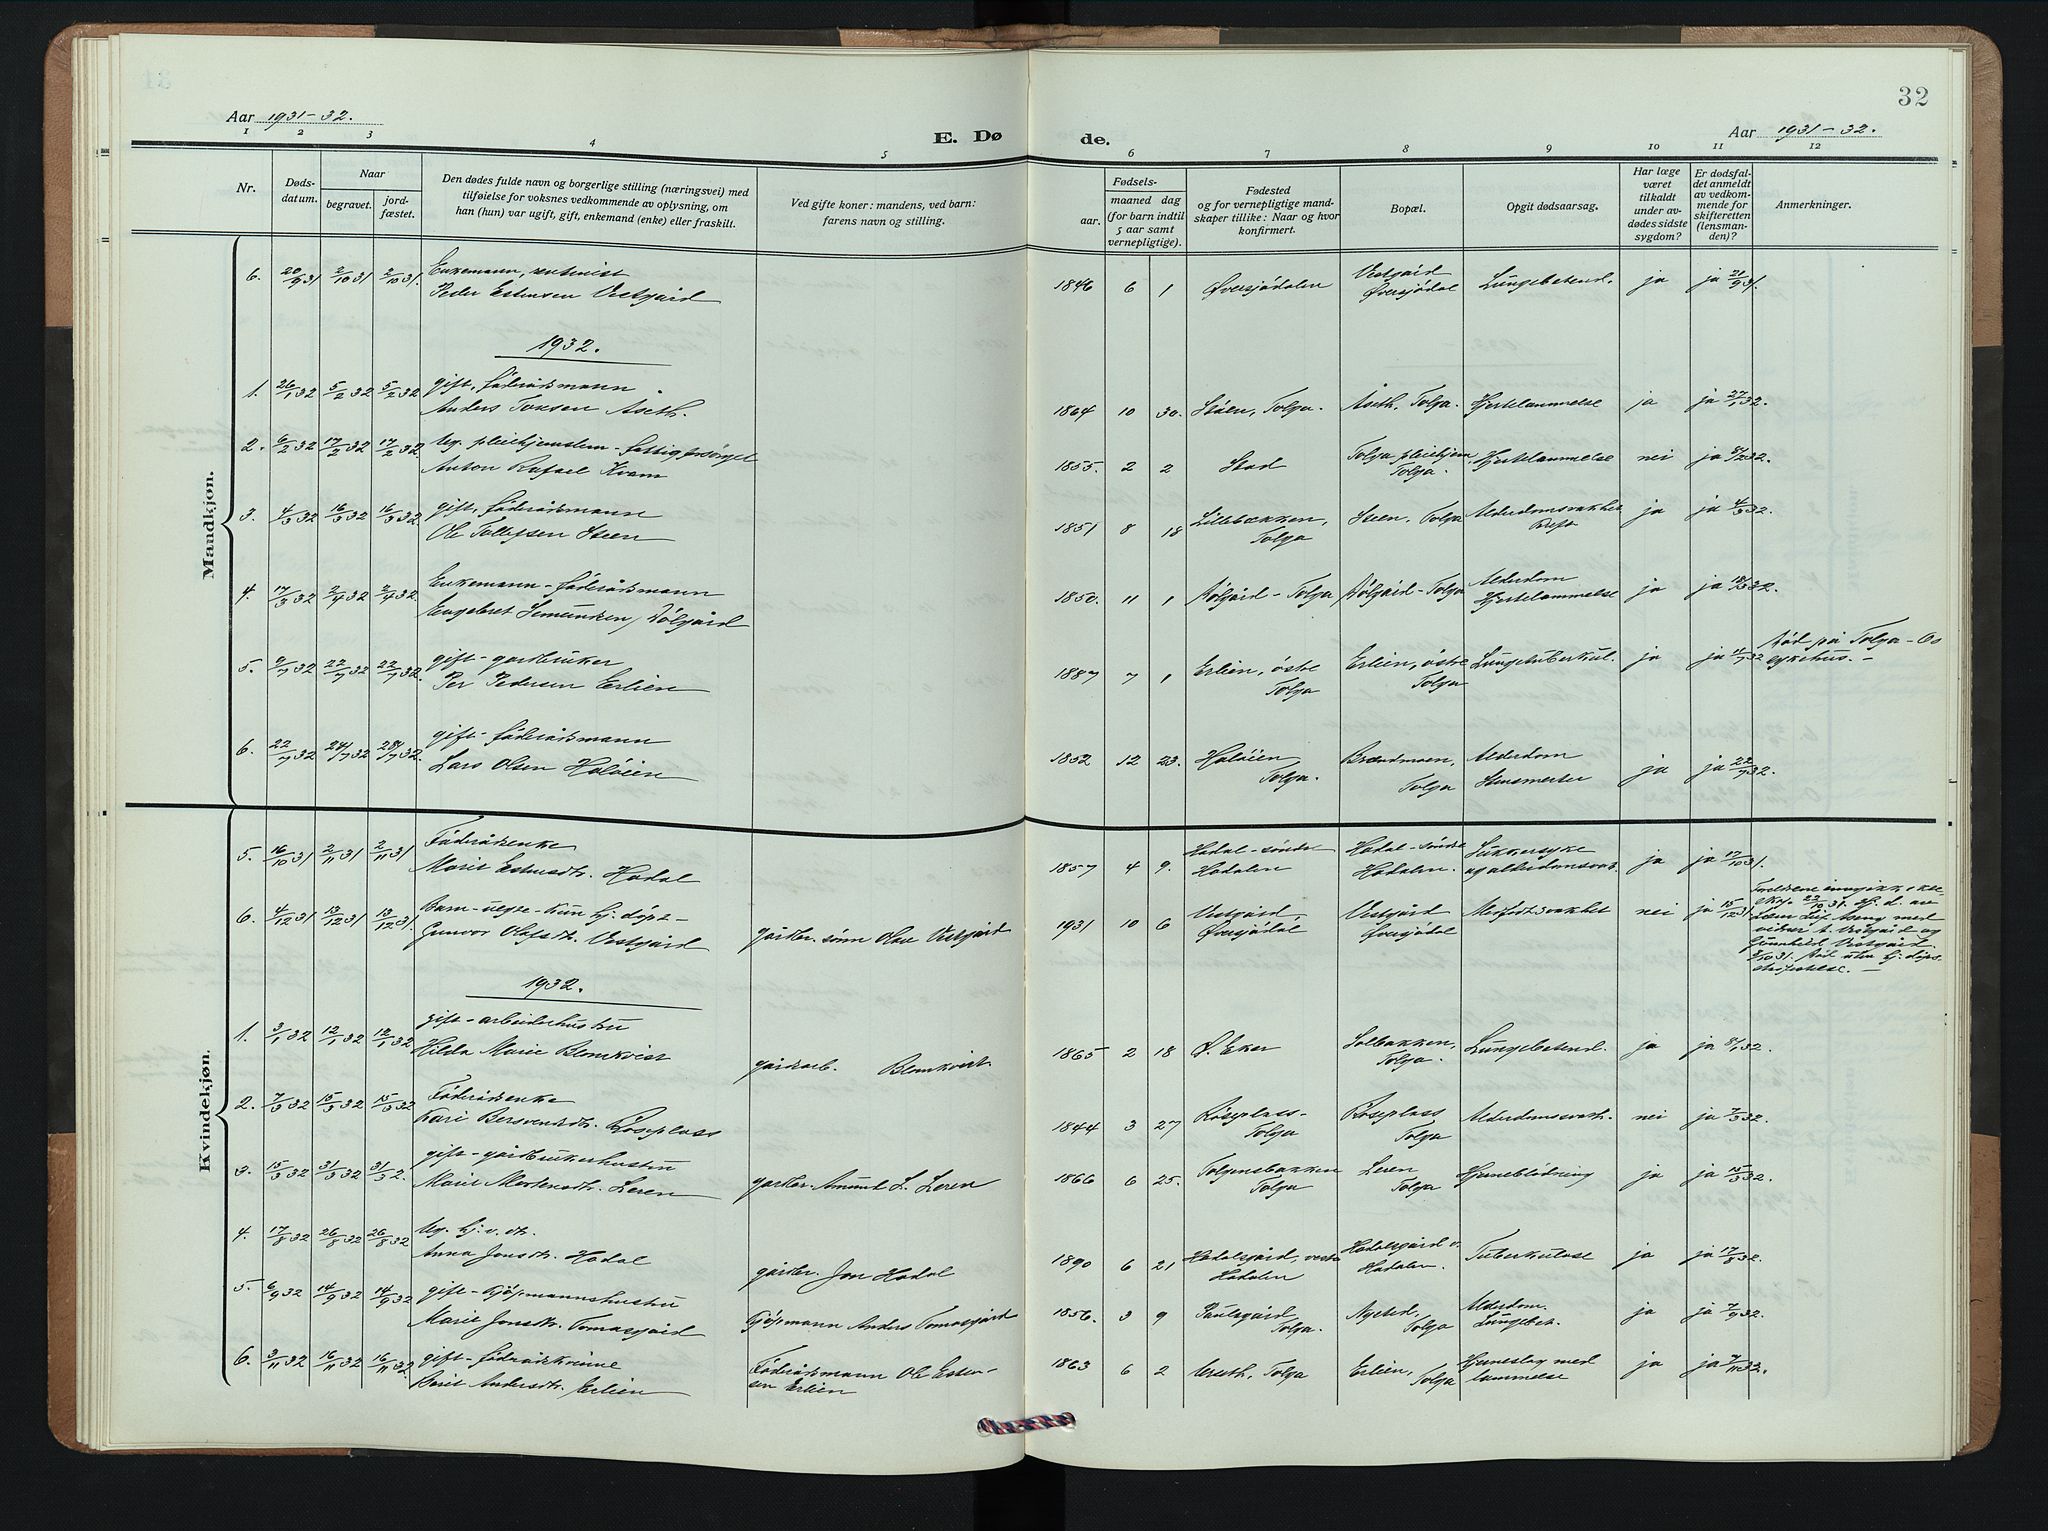 32
Aar 1931-32.
Aar 1931-32.
E. Dø de.
1 2 3 4 5 6 7 8 9 10 11 12
Nr.
Døds-datum.
Naar
begravet.
jord-fæstet.
Den dødes fulde navn og borgerlige stilling (næringsvei) med
tilføielse for voksnes vedkommende av oplysning, om
han (hun) var ugift, gift, enkemand (enke) eller fraskilt.
Ved gifte koner: mandens, ved barn:
farens navn og stilling.
Fødsels-
aar.
maaned dag
(for barn indtil
5 aar samt
vernepligtige).
Fødested
og for vernepligtige mand-
skaper tillike: Naar og hvor
konfirmert.
Bopæl.
Opgit dødsaarsag.
Har læge
været
tilkaldt
under av-
dødes sidste
sygdom?
Er dødsfal-
det anmeldt
av vedkom-
mende for
skifteretten
(lensman-
den)?
Anmerkninger.
Mandkjøn.
6. 20/9 31 2/10 31 2/10 31 Enkemann, rentenist
Peder Estensen Vestgård 1846 6 1 Øversjødalen Vestgård Øversjødal Lungebetend. ja ja 21/9 31.
1932.
1. 26/1 32 5/2 32 5/2 32 gift, føderådsmann
Anders Toresen Aseth. 1864 10 30. Støen, Tolga. Åseth, Tolga. Hjertelammelse ja ja 27/1 32.
2. 6/2 32 17/2 32 17/2 32. Ug. pleiehjemslem - fattigforsørget
Anton Rafael Kvam 1855. 2 2 Stad Tolga pleiehjem, Tolga. Hjertelammelse nei ja 8/2 32.
3. 4/3 32 16/3 32 16/3 32 gift, føderådsmann
Ole Tollefsen Steen 1851 8 18 Lillebækken, Tolga Steen, Tolga Alderdomsvakhet ja ja 4/3 32.
4. 17/3 32 2/4 32 2/4 32 Enkemann - føderådsmann
Engebret Semundsen Dølgård 1850. 11 1 Dølgård - Tolga Dølgård - Tolga Alderdom Hjertelammelse ja ja 18/3 32.
5. 9/7 32 22/7 32 22/7 32. gift - gardbruker
Per Pedersen Erlien 1887 7 1 Erlien, østre Tolga Erlien, østre Tolga Lungetuberkul. ja ja 4/7 32 Død på Tolga - Os
sykehus. -
6. 22/7 32 28/7 32 28/7 32. gift - føderådsmann
Lars Olsen Holøien 1852 12 23. Holøien Tolga. Brændmoen, Tolga Alderdom ja ja 22/7 32.
Kvindekjøn.
5. 16/10 31 2/11 31 2/11 31 Føderådsenke
Marit Estensdtr. Hodal 1857 4 9. Hodal - søndre Hodalen Hodal - søndre Hodalen. Sukkersyke og alderdomsvak. ja ja 17/10 31.
6. 4/12 31 13/12 31 13/12 31. Barn - uegte - kun hj. døpt -
Gunvor Olafsdtr. Vestgård gårdbr. sønn Olav Vestgård 1931 10 6 Vestgård, Øversjødal Vestgård Øversjødal Medfødt svakhet nei ja 15/12 31.
1932.
1. 3/1 32 12/1 32 12/1 32 gift - arbeiderhustru
Hilda Marie Blomkvist gårdsarb. Blomkvist. 1865 2 18 Ø. Eker Solbakken, Tolga. Lungebetend. ja ja 8/1 32.
2. 7/3 32 15/3 32 15/3 32 Føderådsenke
Kari Bersvendsdtr. Røseplass 1844 3 27 Røseplass - Tolga Røseplass Tolga Alderdomsvakh. nei ja 7/3 32.
3. 15/3 32 31/3 32 31/3 2. gift - gårdbrukerhustru
Marit Mortensdtr. Leren gardbr. Amund L. Leren 1866 6 25. Tolgensbakken Tolga Leren Tolga Hjerneblødning ja ja 15/3 32.
4. 17/8 32 26/8 32 26/8 32 Ug. hj. v. dtr.
Anna Jonsdtr. Hodal gårdbr. Jon Hodal 1890 6 21 Hodalsgård, vestre Hodalen Hodalsgård v. Hodalen. Tuberkulose ja ja 17/8 32.
5. 6/9 32 14/9 32 14/9 32 gift - kjøpmannshustru
Marit Jonsdtr. Tomasgård Kjøpmann Anders Tomasgård 1856. 3 9 Paulsgård Tolga. Nysted, Tolga Alderdom. Lungebet. ja ja 7/9 32.
6. 3/11 32 16/11 32 16/11 32. gift - føderådskvinne
Berit Andersdtr. Erlien Føderådsmann Ole Esten-
sen Erlien 1863 6 2 Urseth, Tolga Erlien, Tolga Hjerneslag med lammelse ja ja 7/11 32.